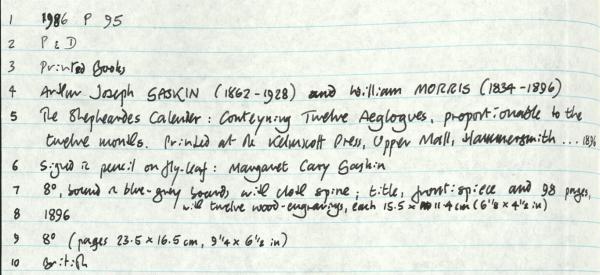 1 1986 P 95
2 P & D
3 Printed Books
4 Arthur Joseph GASKIN (1862-1928) and William MORRIS (1834-1896)
5 The Shepheardes Calender: Conteyning Twelve Aeglogues, proportionable to the
twelve months. Printed at the Kelmscott Press, Upper Mall, Hammersmith ... 1896
6 Signed in pencil on fly-leaf: Margaret Cary Gaskin
7 8°, bound in blue-grey boards with cloth spine; title, frontispiece and 98 pages,
with twelve wood-engravings, each 15.5 x 11.4 cm (6 1/8 x 4 1/2 in)
8 1896
9 8° (pages 23.5 x 16.5 cm, 9 1/4 x 6 1/2 in)
10 British